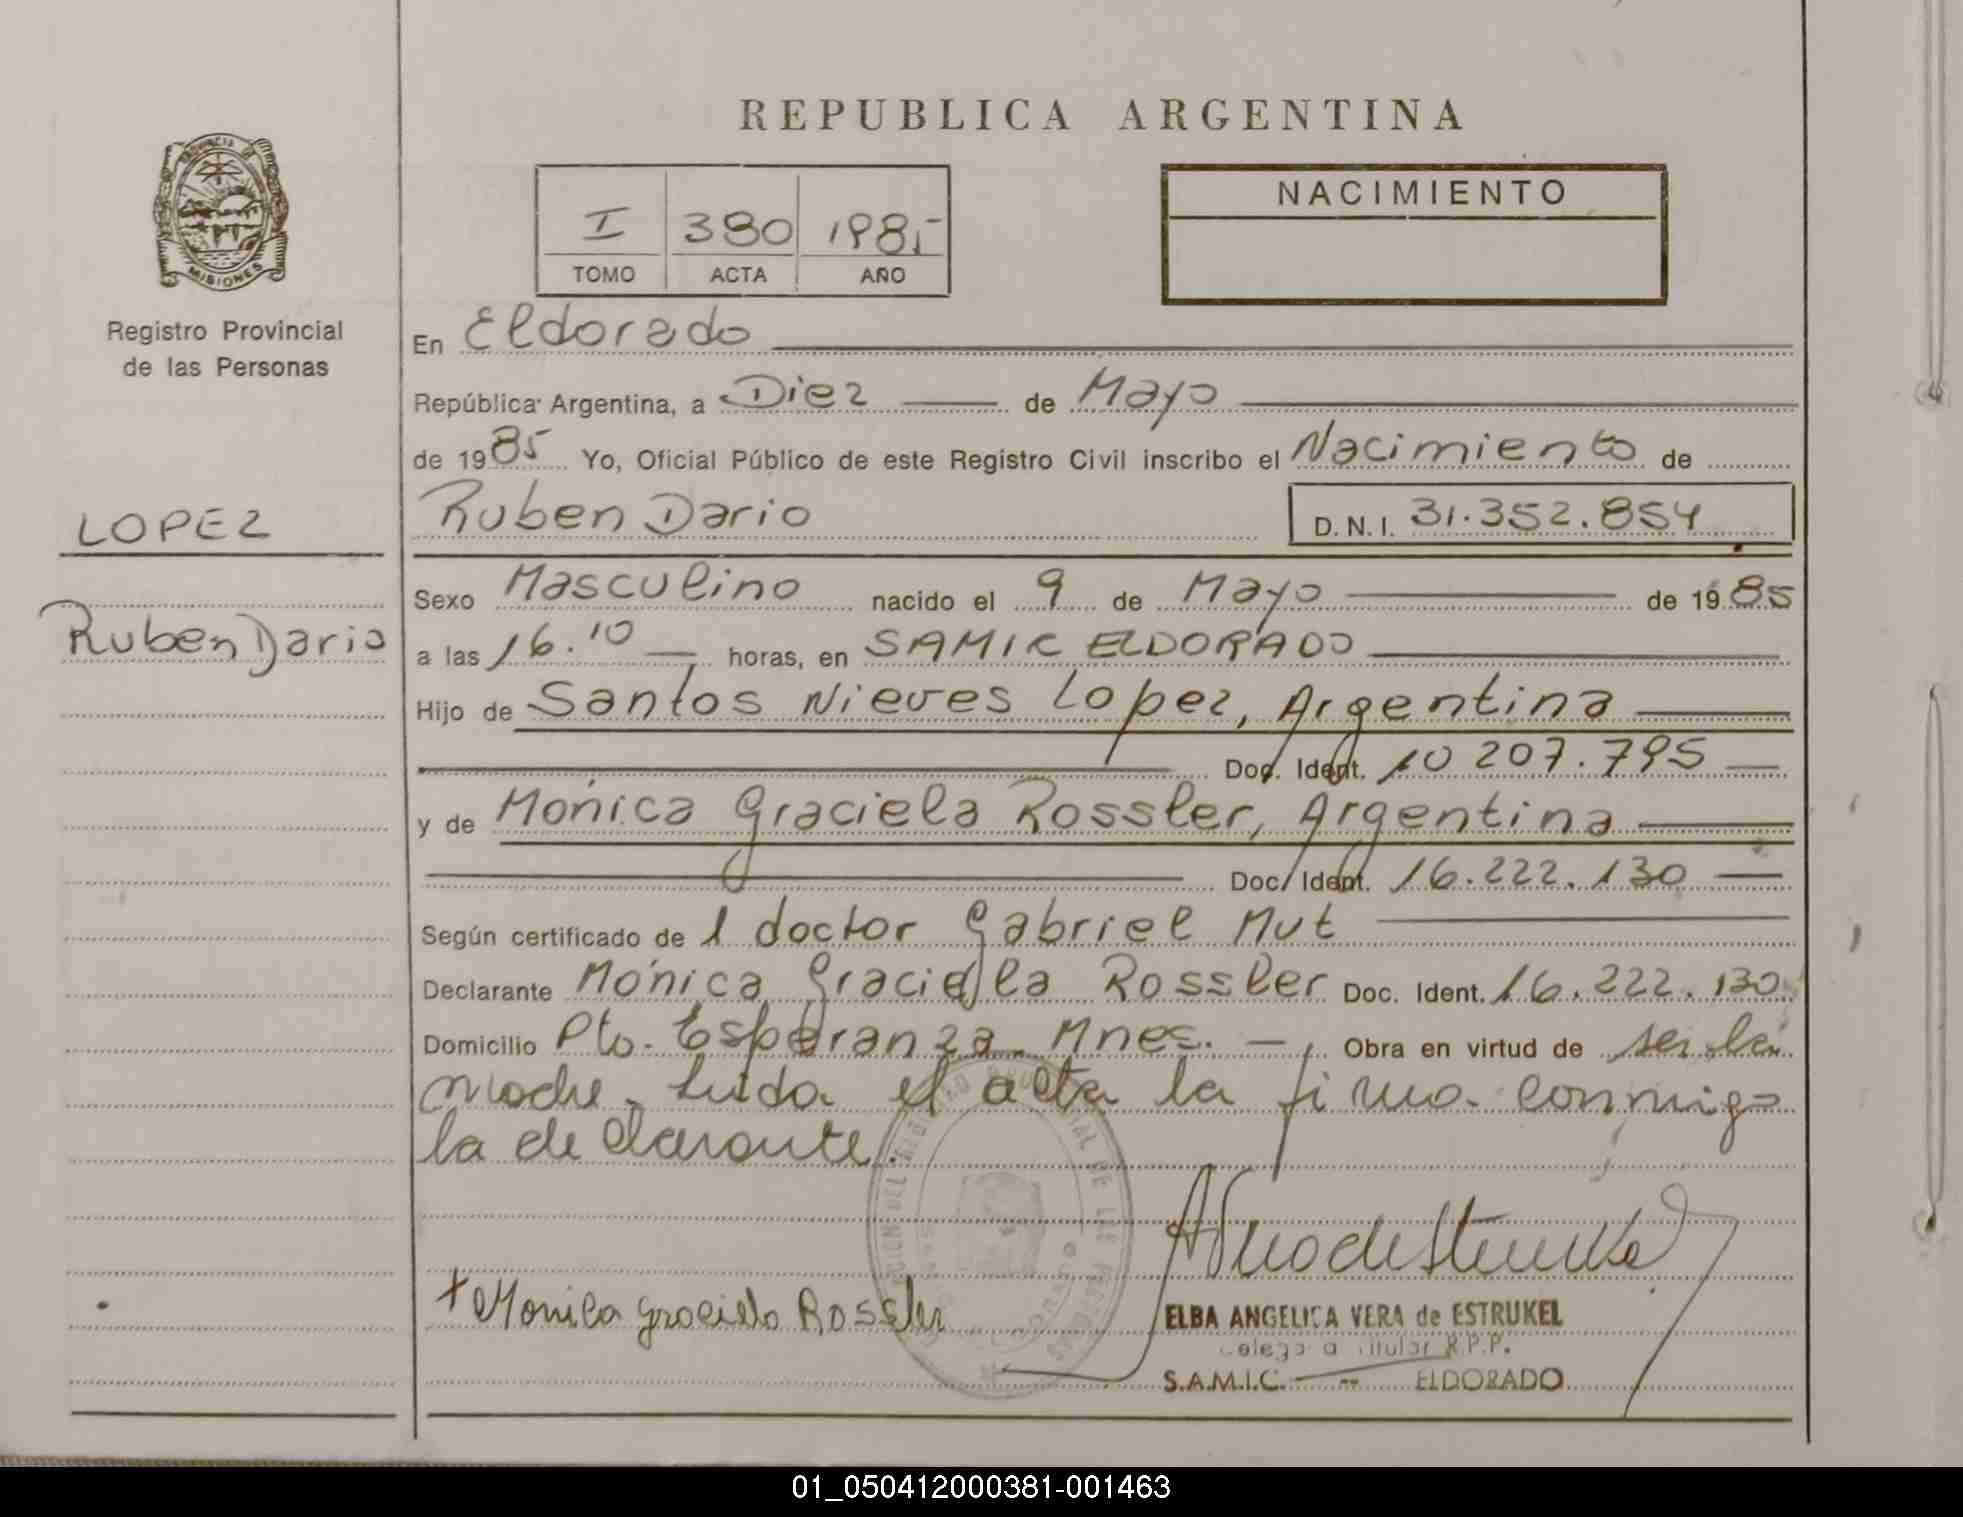 REPUBLICA ARGENTINA
PROVINCIA DE
MISIONES
Registro Provincial
de las Personas
I 380 1985
TOMO ACTA AÑO
NACIMIENTO
En Eldorado
República Argentina, a Diez de Mayo
de 1985 Yo, Oficial Público de este Registro Civil inscribo el Nacimiento de
LOPEZ
Ruben Dario
D.N.I. 31.352.854
Sexo Masculino nacido el 9 de Mayo de 1985
Ruben Dario
a las 16.10 horas, en SAMIC ELDORADO
Hijo de Santos Nieves Lopez, Argentina
Doc. Ident. 10 207.795
y de Mónica Graciela Rossler, Argentina
Doc. Ident. 16.222.130
Según certificado de l doctor Gabriel Mut
Declarante Mónica Graciela Rossler Doc. Ident. 16.222.130
Domicilio Pto. Esperanza Mnes. Obra en virtud de ser la
madre. Leida el acta la firma conmigo
la declarante.
+ Monica Graciela Rossler
ELBA ANGELICA VERA de ESTRUKEL
R.P.P.
S.A.M.I.C. -- ELDORADO
01_050412000381-001463